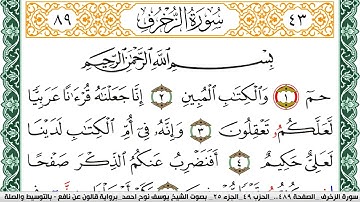 ٨٩ سُورَةُ الزُّخْرُفِ ٤٣
بِسْمِ اللَّهِ الرَّحْمَٰنِ الرَّحِيمِ
حمٓ ١ وَالْكِتَٰبِ الْمُبِينِ ٢ إِنَّا جَعَلْنَٰهُ قُرْءَٰناً عَرَبِيّاً
لَّعَلَّكُمُۥ تَعْقِلُونَ ٣ وَإِنَّهُۥ فِىٓ أُمِّ الْكِتَٰبِ لَدَيْنَا
لَعَلِىٌّ حَكِيمٌ ٤ أَفَنَضْرِبُ عَنكُمُ الذِّكْرَ صَفْحاً
سورة الزخرف الصفحة ٤٨٩.. الحزب ٤٩ الجزء ٢٥ بصوت الشيخ يوسف نوح احمد برواية قالون عن نافع - بالتوسيط والصلة